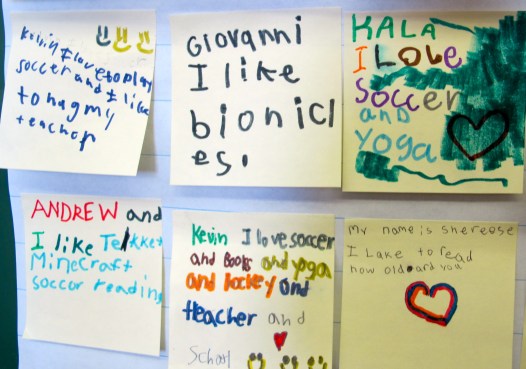 Kevin I love to play
soccer and I like
to hag my
teachor
Giovanni
I like
bionicl
es.
KALA
I LOVE
Soccer
and
YOGA
ANDREW and
I like
MineCraft
soccor reading
Kevin I love soccer
and Books and yoga
and hockey and
teacher and
My name is shereese
I Lake to read
how old and you